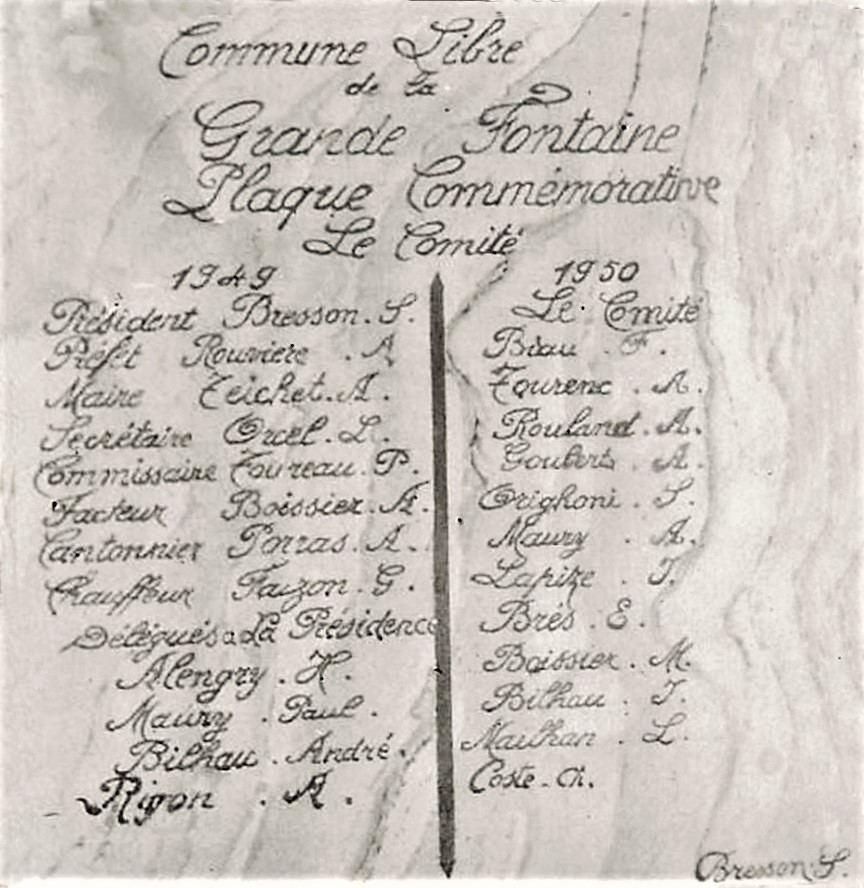 Commune Libre
de la
Grande Fontaine
Plaque Commémorative
Le Comité
1949
Président Bresson. S.
Préfet Rouviere . A
Maire Teichet. A.
Secrétaire Orcel. L.
Commissaire Toureau. P.
Facteur Boissier. A.
Cantonnier Porras. A.
Chauffeur Faizon. G.
Délégués a La Présidence
Alengry . H.
Maury . Paul .
Bilhau . André.
Rigon . A .
1950
Le Comité
Biau . F.
Tourenc . A.
Rouland. A.
Goubert . A.
Orighoni . S.
Maury . A.
Lapize . J.
Brés . E.
Boissier. M.
Bilhau . J.
Mailhan . L.
Coste - Ch.
Bresson. S.